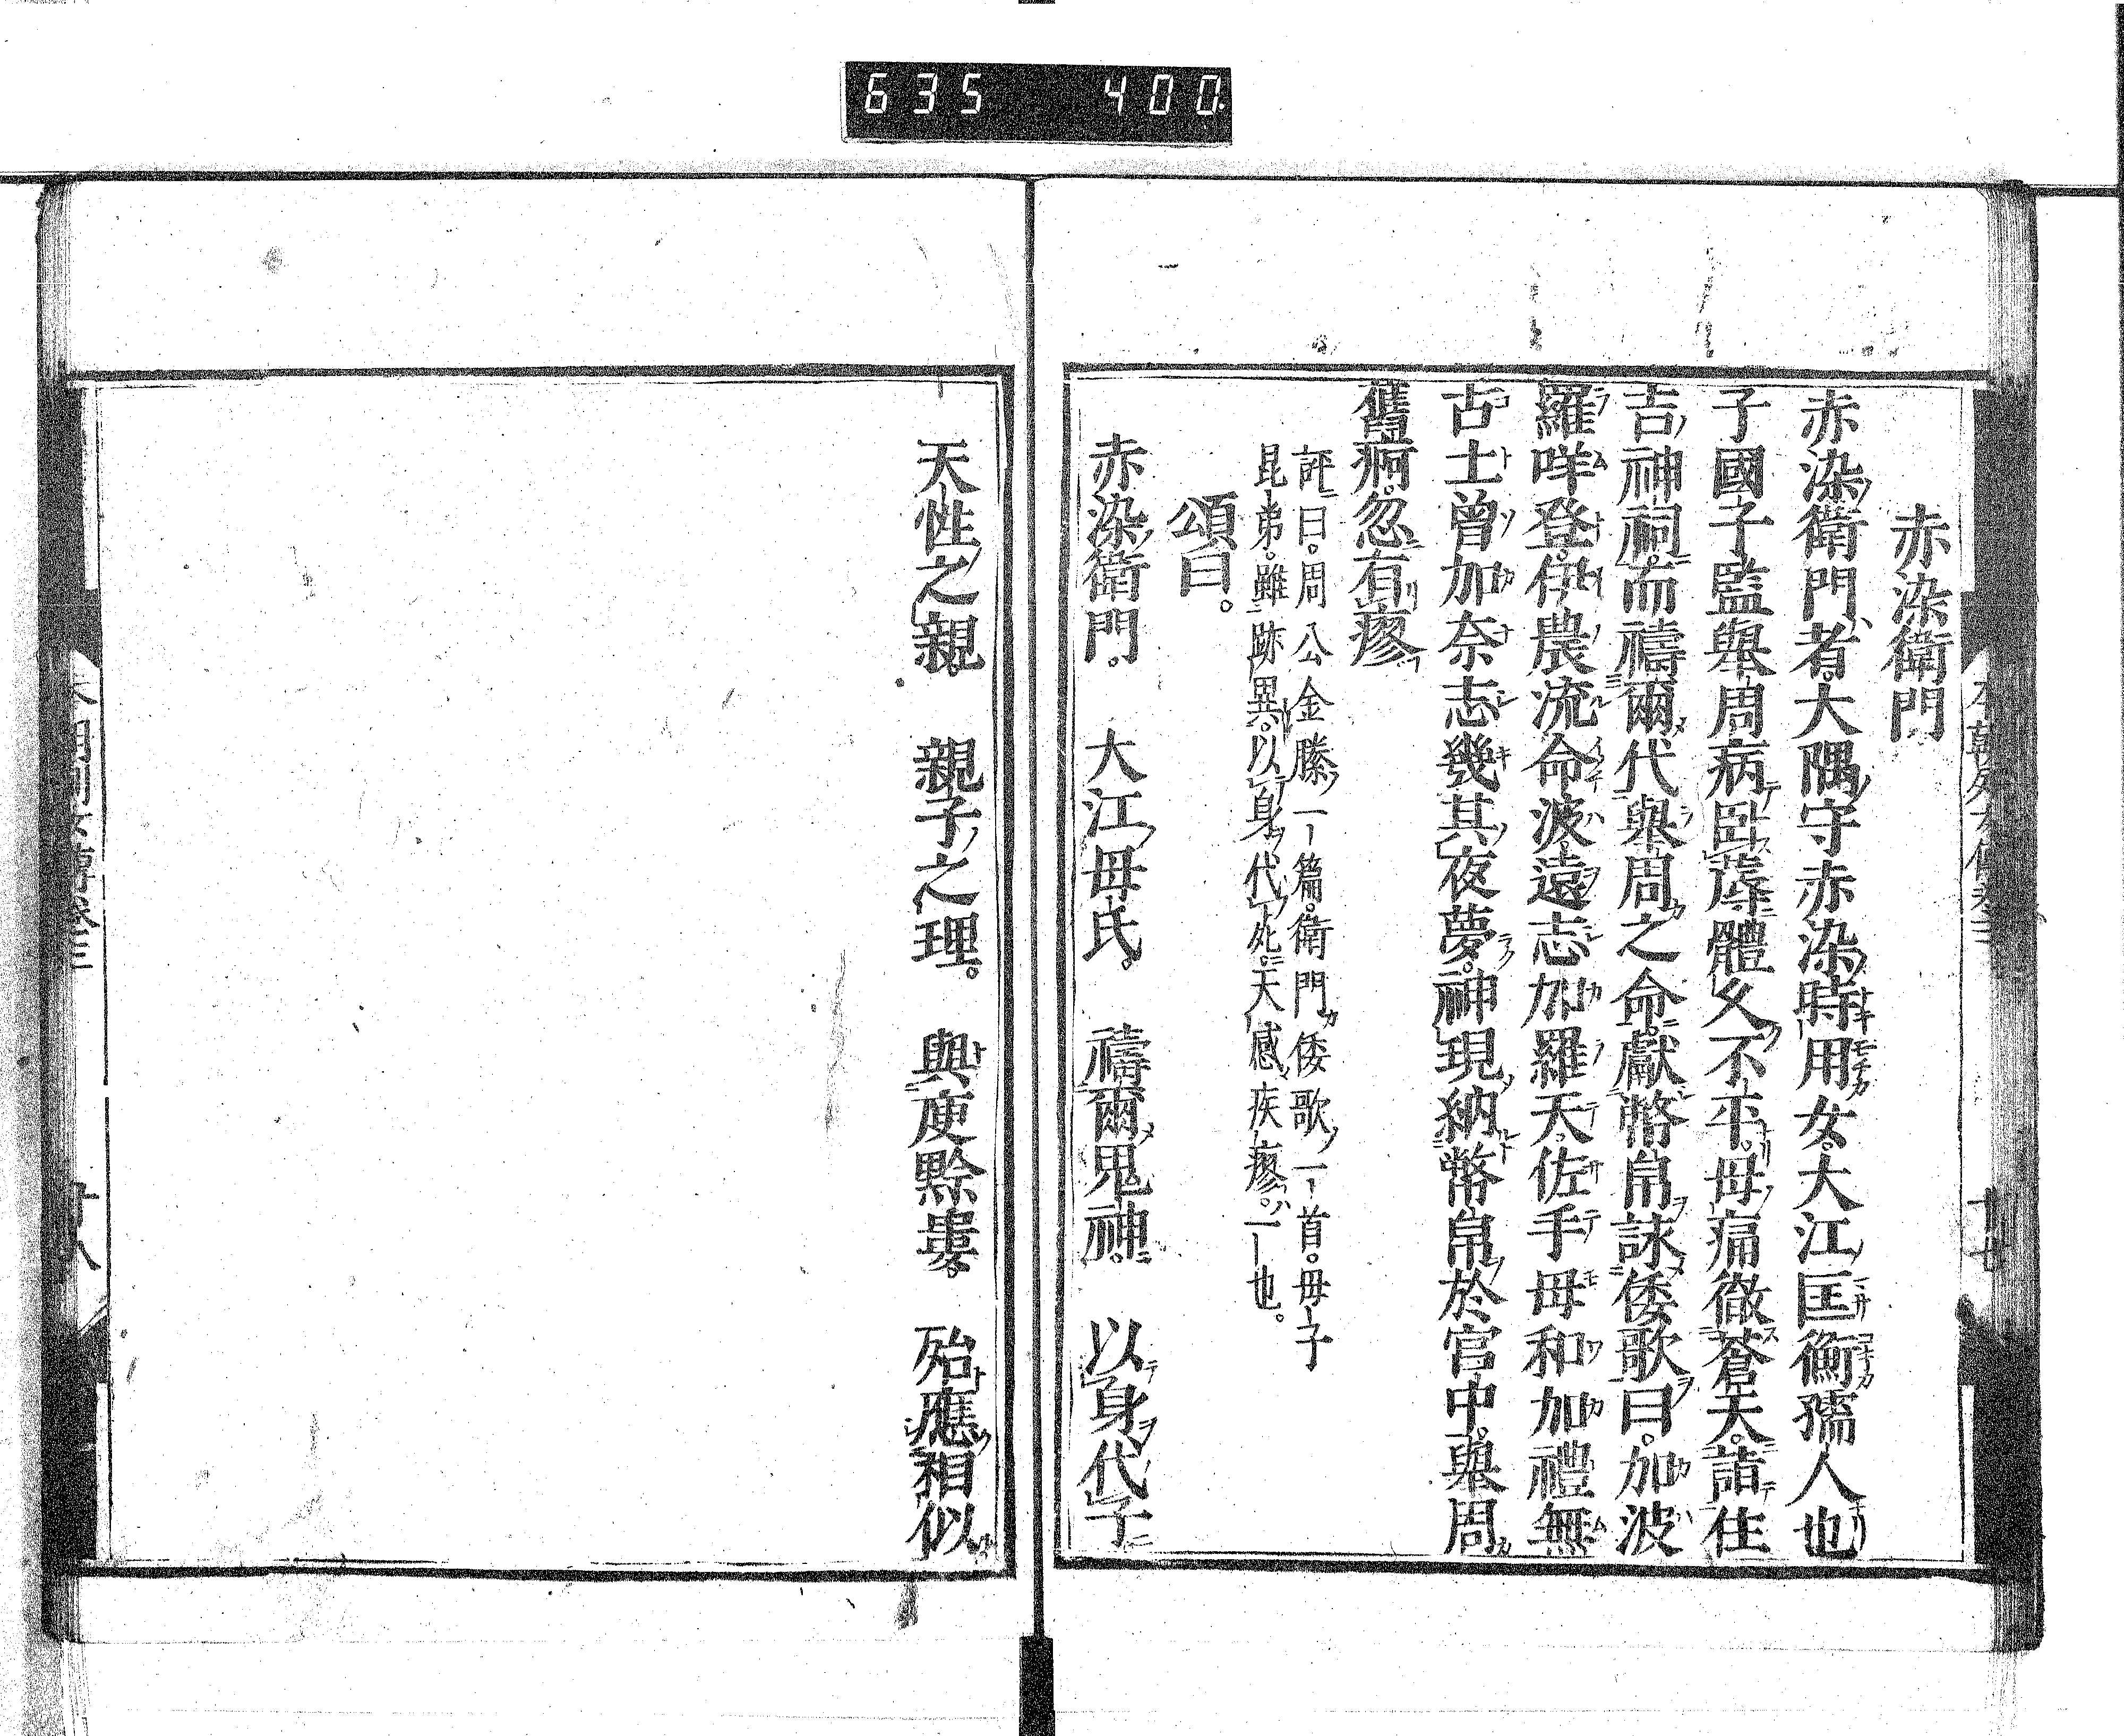 635 400
赤染衛門
赤染衛門者。大隅守赤染時用女。大江匡衡孺人也
子國子監擧周病臥蓐體久不平。母痛徹蒼天。詣住
吉神祠。而禱爾代擧周之命。獻幣帛詠倭歌曰。加波
羅咩登。伊農流命波。遠志加羅天。佐手毋和加禮無
古土曾加奈志幾其夜夢。神現納幣帛於官中。擧周
舊痾忽有瘳
評曰。周公金縢一篇。衛門倭歌一首。母子
昆弟。雖跡異。以身代死。天感疾瘳。一也。
頌曰。
赤染衛門。 大江母氏。 禱爾鬼神。 以身代子
天性之親。 親子之理。 與庾黔婁。 殆應相似